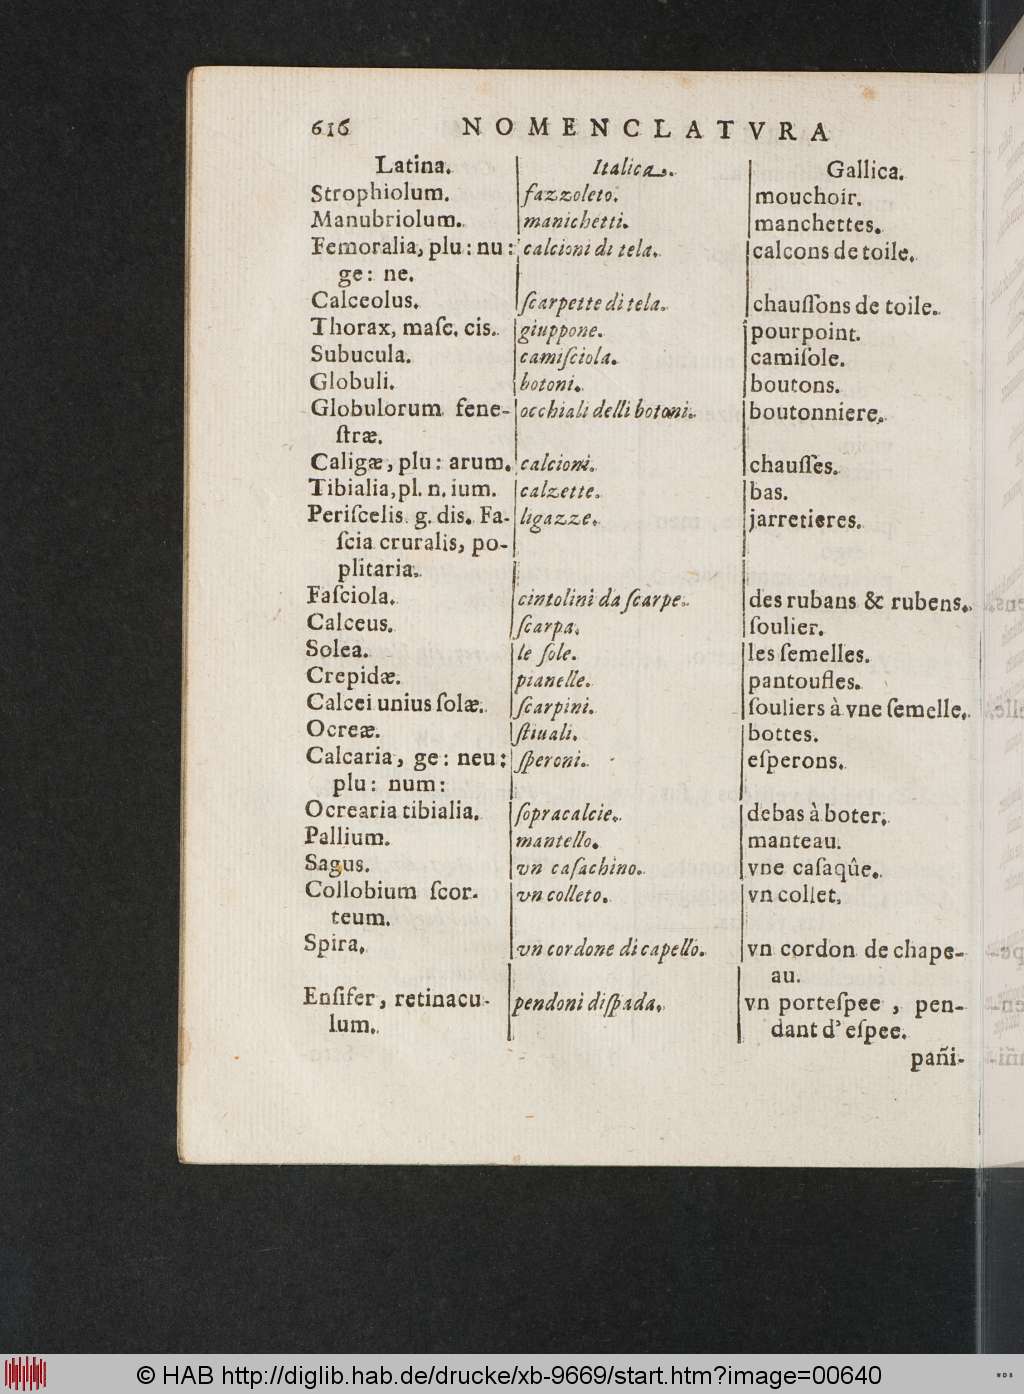 616 NOMENCLATVRA
Latina. Italica. Gallica.
Strophiolum. fazzoleto. mouchoir.
Manubriolum. manichetti. manchettes.
Femoralia, plu: nu: calcioni di tela. calcons de toile.
ge: ne.
Calceolus. ſcarpette di tela. chauſſons de toile.
Thorax, maſc. cis. giuppone. pourpoint.
Subucula. camiſciola. camiſole.
Globuli. botoni. boutons.
Globulorum fene- occhiali delli botoni. boutonniere.
ſtræ.
Caligæ, plu: arum. calcioni. chauſſes.
Tibialia, pl. n. ium. calzette. bas.
Periſcelis g. dis. Fa- ligazze. jarretieres.
ſcia cruralis, po-
plitaria.
Faſciola. cintolini da ſcarpe. des rubans & rubens.
Calceus. ſcarpa. ſoulier.
Solea. le ſole. les ſemelles.
Crepidæ. pianelle. pantoufles.
Calcei unius ſolæ. ſcarpini. ſouliers à vne ſemelle.
Ocreæ. ſtiuali. bottes.
Calcaria, ge: neu: ſperoni. eſperons.
plu: num:
Ocrearia tibialia. ſopracalcie. debas à boter.
Pallium. mantello. manteau.
Sagus. vn caſachino. vne caſaqûe.
Collobium ſcor- vn colleto. vn collet.
teum.
Spira. vn cordone di capello. vn cordon de chape-
au.
Enſifer, retinacu- pendoni diſpada. vn porteſpee, pen-
lum. dant d' eſpee.
pañi-
© HAB http://diglib.hab.de/drucke/xb-9669/start.htm?image=00640